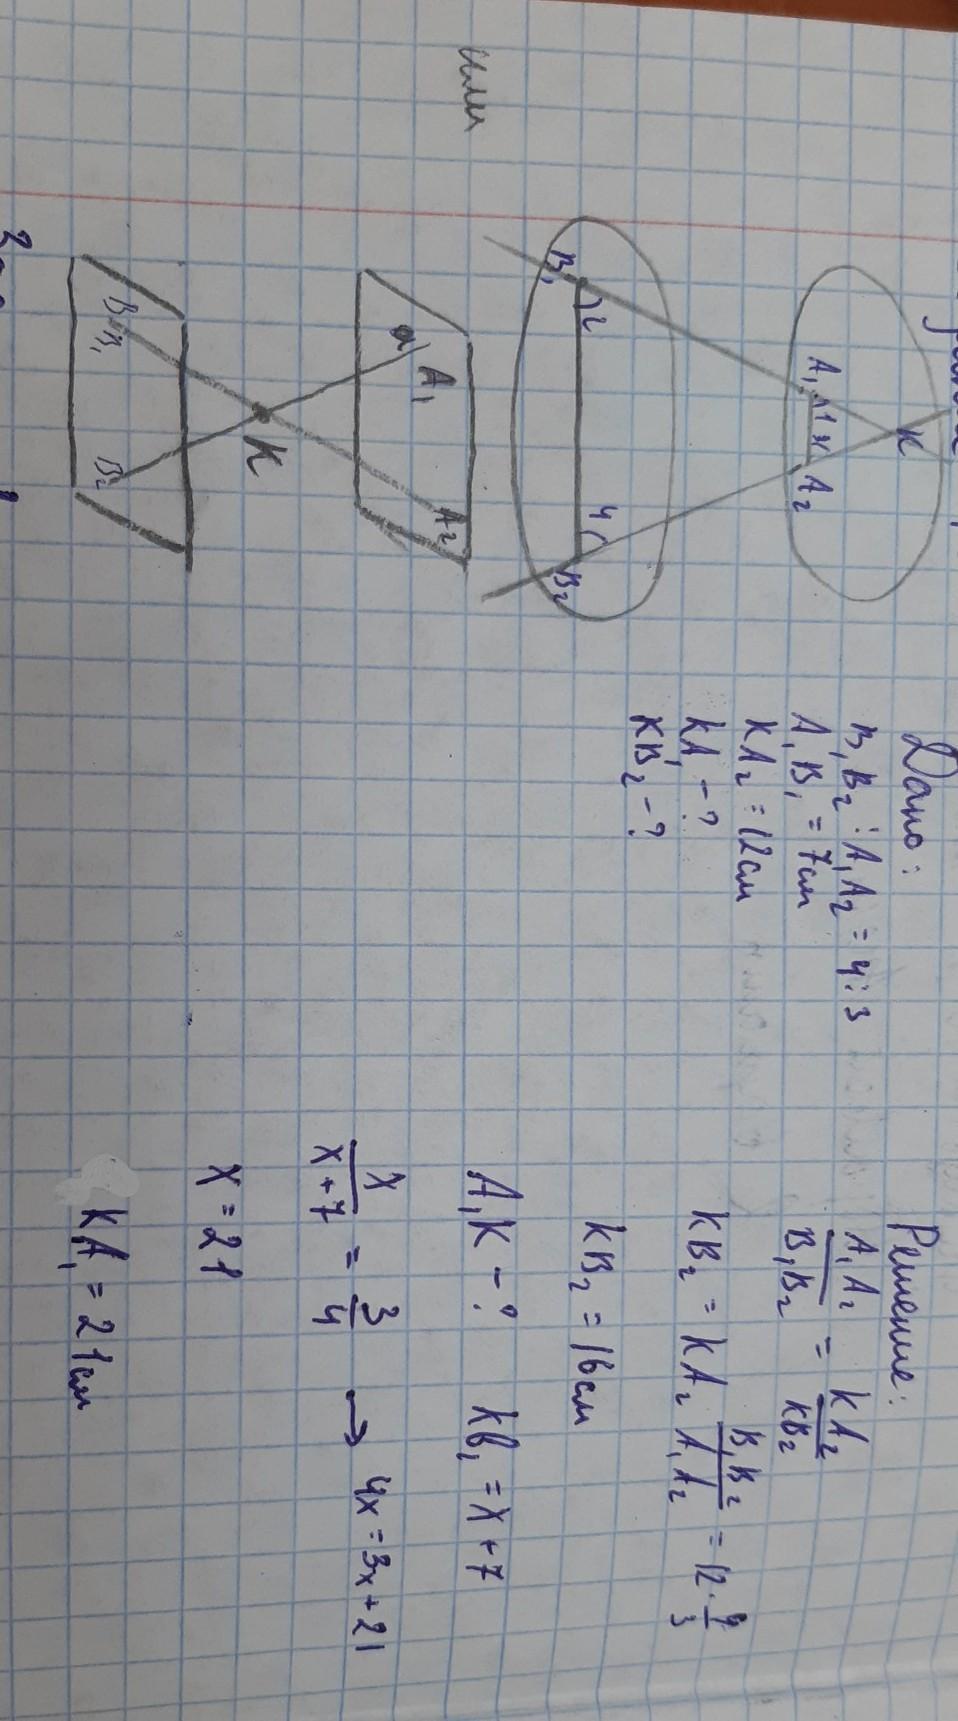 K
A₁ 1 3 A₂
B₁ 2 4 B₂
или
A₁ A₂
K
B₁ B₂
Дано:
B₁B₂ : A₁A₂ = 4:3
A₁B₁ = 7см
KA₂ = 12см
KA₁ - ?
KB₂ - ?
Решение:
A₁A₂/B₁B₂ = KA₂/KB₂
KB₂ = KA₂ B₁B₂/A₁A₂ = 12 · 4/3
KB₂ = 16см
A₁K - ? KB₁ = x + 7
x/(x+7) = 3/4 → 4x = 3x + 21
x = 21
KA₁ = 21см